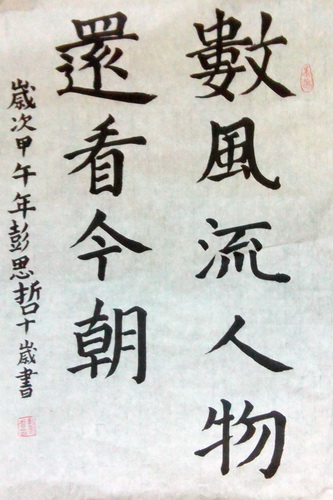 數風流人物
還看今朝
嵗次甲午年彭思哲十嵗書